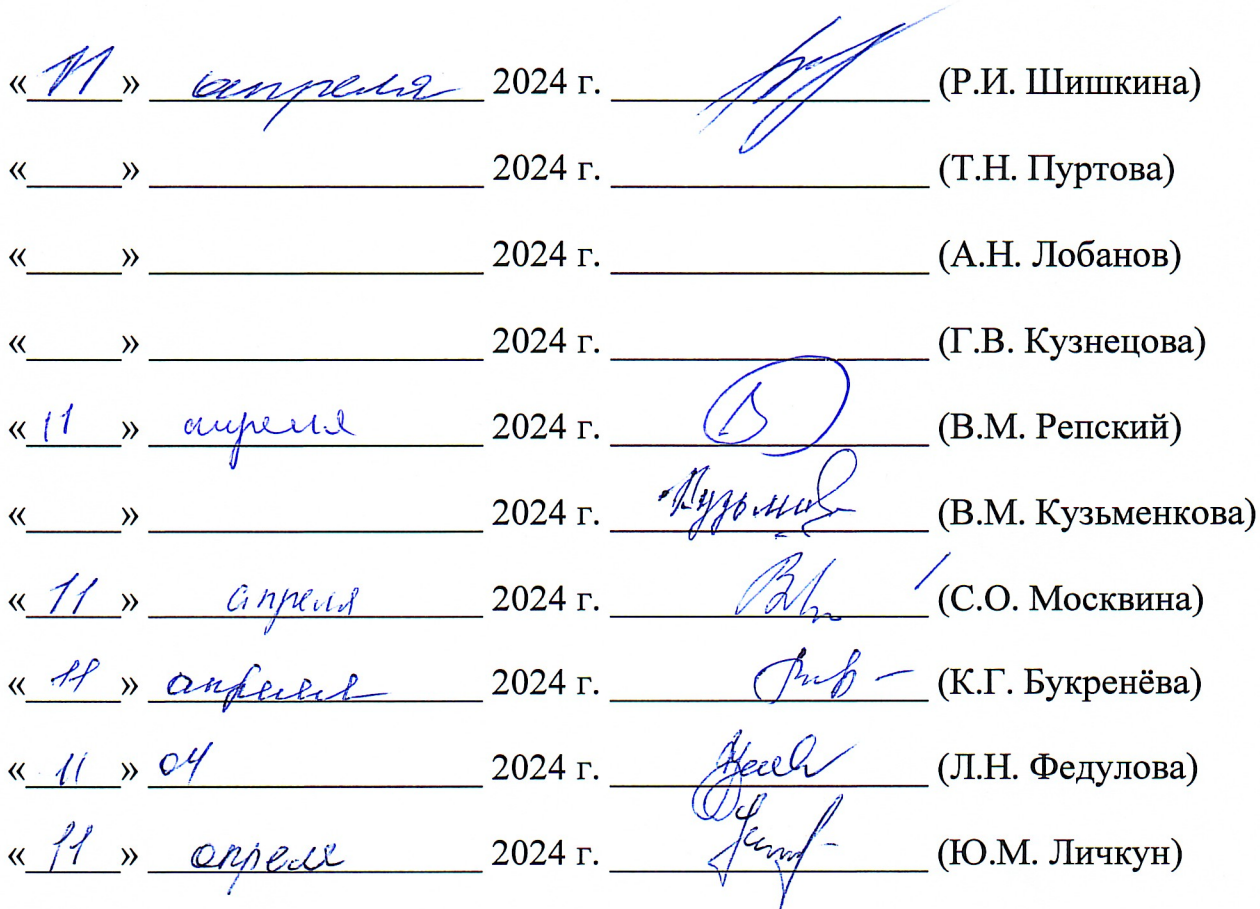 «11» апреля 2024 г. (Р.И. Шишкина)
«_____» 2024 г. (Т.Н. Пуртова)
«_____» 2024 г. (А.Н. Лобанов)
«_____» 2024 г. (Г.В. Кузнецова)
«11» апреля 2024 г. В (В.М. Репский)
«_____» 2024 г. (В.М. Кузьменкова)
«11» апреля 2024 г. (С.О. Москвина)
«11» апреля 2024 г. (К.Г. Букренёва)
«11» 04 2024 г. (Л.Н. Федулова)
«11» апреля 2024 г. (Ю.М. Личкун)